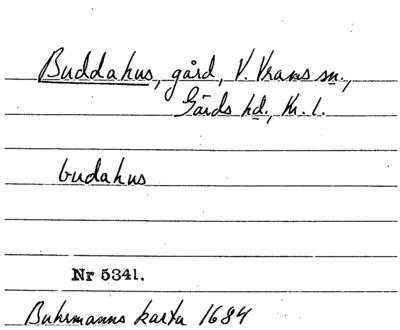 Buddahus, gård, V. Vrams sn.,
Gärds hd., Kr. l.
budahus
Nr 5341.
Buhrmanns karta 1684